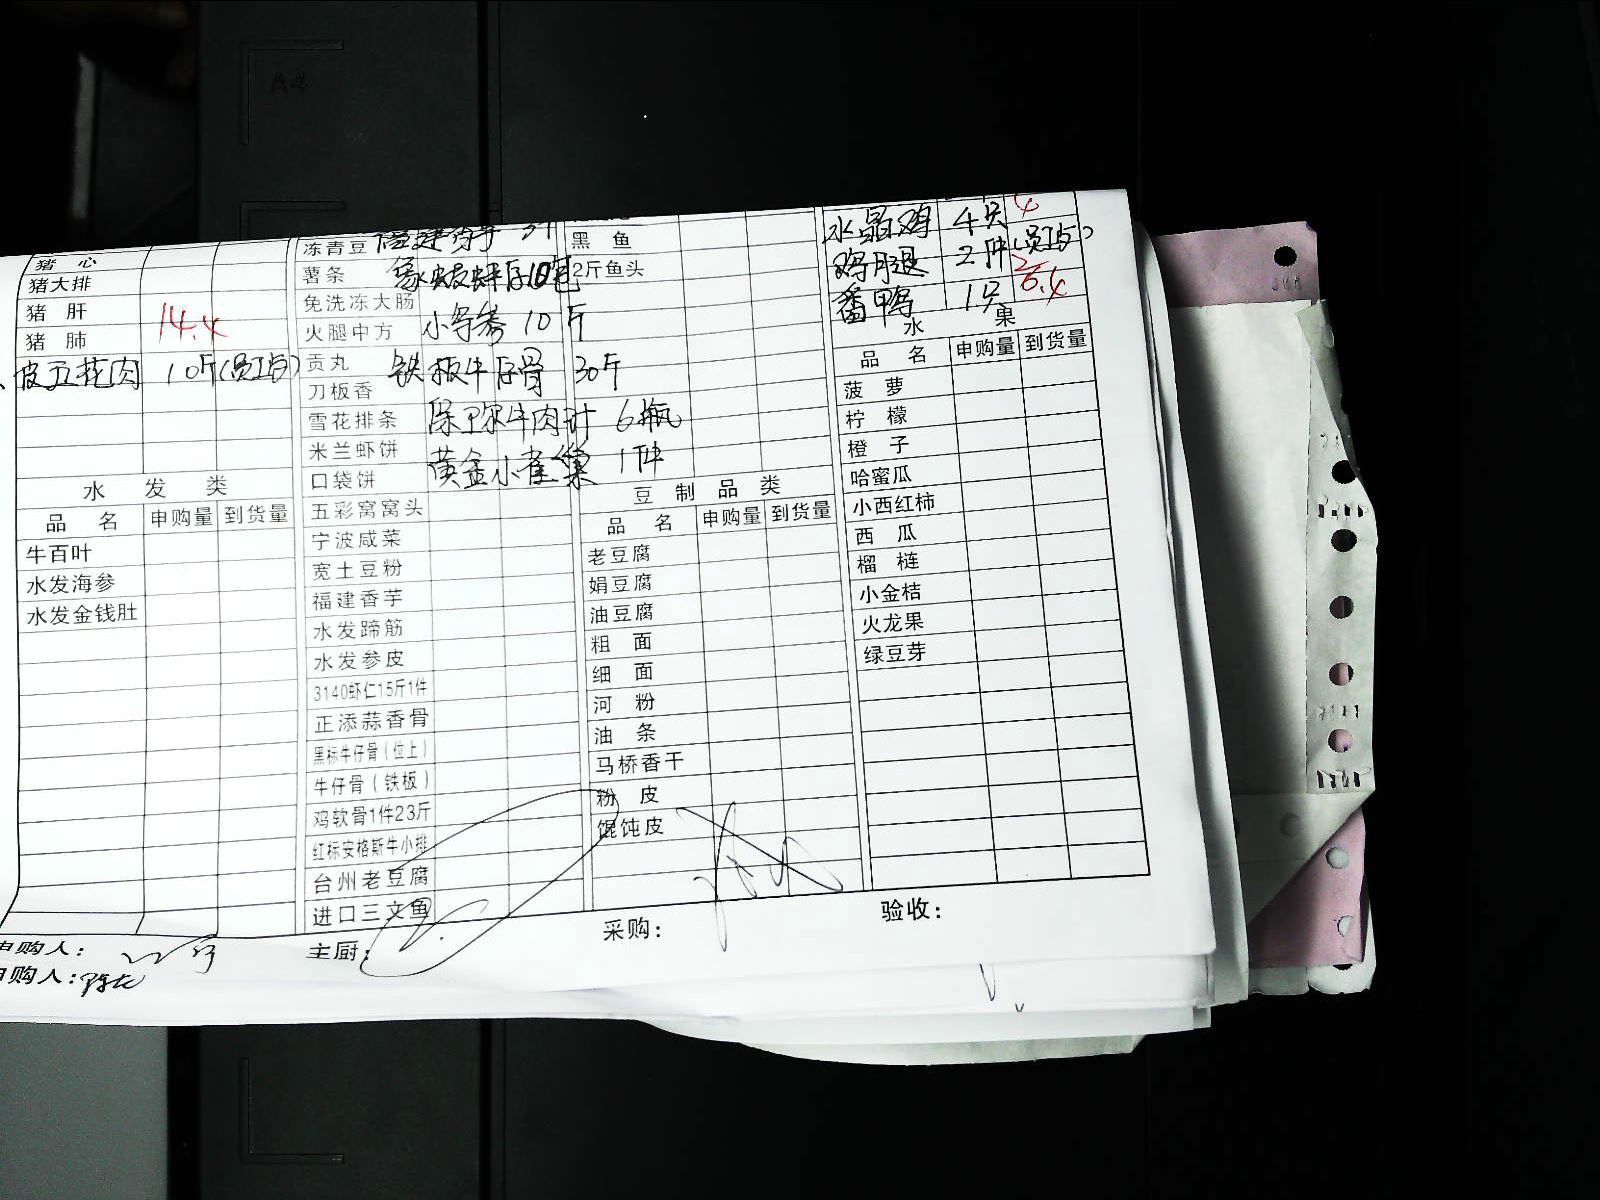 猪 心
猪大排
猪 肝
猪 肺
14.4
皮五花肉 10斤(员工占)
水 发 类
品 名 申购量 到货量
牛百叶
水发海参
水发金钱肚
冻青豆
薯条
免洗冻大肠
火腿中方 小海参 10斤
贡丸 铁板牛仔骨 30斤
刀板香
雪花排条 保卫尔牛肉汁 6瓶
米兰虾饼
口袋饼 黄金小雀巢 1件
五彩窝窝头
宁波咸菜
宽土豆粉
福建香芋
水发蹄筋
水发参皮
3140虾仁15斤1件
正添蒜香骨
黑标牛仔骨(位上)
牛仔骨(铁板)
鸡软骨1件23斤
红标安格斯牛小排
台州老豆腐
进口三文鱼
黑 鱼
2斤鱼头
豆 制 品 类
品 名 申购量 到货量
老豆腐
娟豆腐
油豆腐
粗 面
细 面
河 粉
油 条
马桥香干
粉 皮
馄饨皮
水晶鸡 4只 4
鸡腿 2件(员工占) 2
番鸭 1只 6.4
水 果
品 名 申购量 到货量
菠 萝
柠 檬
橙 子
哈蜜瓜
小西红柿
西 瓜
榴 梿
小金桔
火龙果
绿豆芽
申购人:
主厨:
采购:
验收:
申购人:
A4